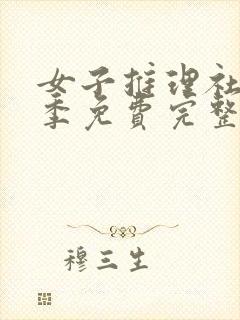 女子推理社
季免费完整
穆三生